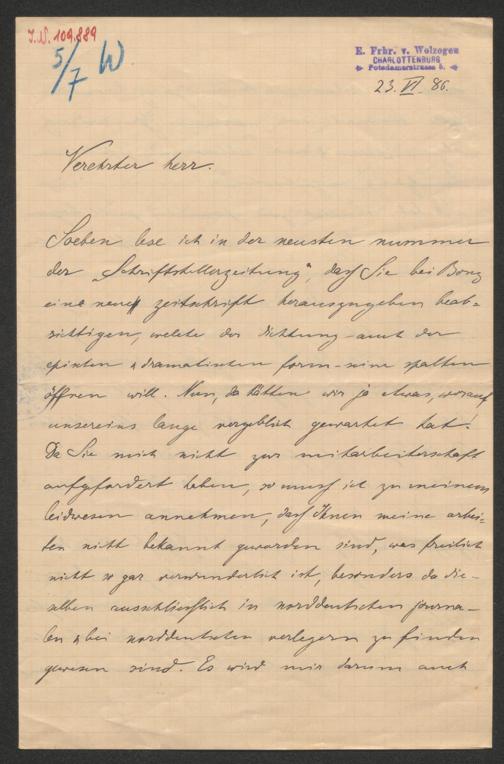 I.N. 109.889
5/7 W
E. Frhr. v. Wolzogen
CHARLOTTENBURG
Potsdamerstrasse 5.
23. VI. 86.
Verehrter herr.
Soeben lese ich in der neusten nummer
der „Schriftstellerzeitung“, daß Sie bei Bonz
eine neue zeitschrift herauszugeben beab-
sichtigen, welche der dichtung – auch der
epischen & dramatischen form – seine spalten
öffnen will. Nun, da hätten wir ja etwas, worauf
unsereins lange vergeblich gewartet hat!
Da Sie mich nicht zur mitarbeiterschaft
aufgefordert haben, so muß ich zu meinem
leidwesen annehmen, daß Ihnen meine arbei-
ten nicht bekannt geworden sind, was freilich
nicht so gar verwunderlich ist, besonders da die-
selben ausschließlich in norddeutschen journa-
len & bei norddeutschen verlegern zu finden
gewesen sind. Es wird mir darum auch